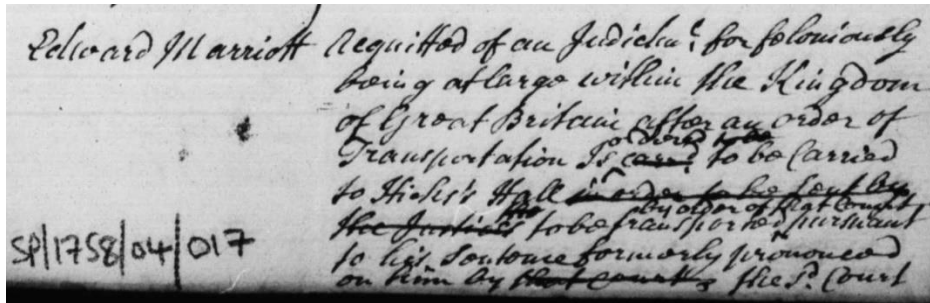 Edward Marriott Acquitted of an Indictmt. for feloniously
being at large within the Kingdom
of Great Britain after an order of
Transportation Is ordered to be carried
to Hicks's Hall in order to be sent by
by order of that Court
the Justices to be transported pursuant
to his Sentence formerly pronounced
on him by that Court the sd. Court
SP/1758/04/017